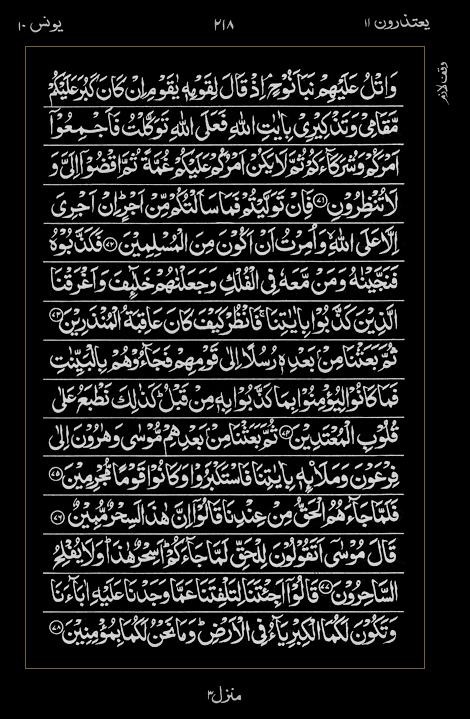 یعتذرون ۱۱
۲۱۸
یونس ۱۰
وقف لازم
وَاتْلُ عَلَيْهِمْ نَبَاَ نُوْحٍ ۘ اِذْ قَالَ لِقَوْمِهٖ يٰقَوْمِ اِنْ كَانَ كَبُرَ عَلَيْكُمْ
مَّقَامِيْ وَتَذْكِيْرِيْ بِاٰيٰتِ اللّٰهِ فَعَلَى اللّٰهِ تَوَكَّلْتُ فَاَجْمِعُوْۤا
اَمْرَكُمْ وَشُرَكَآءَكُمْ ثُمَّ لَا يَكُنْ اَمْرُكُمْ عَلَيْكُمْ غُمَّةً ثُمَّ اقْضُوْۤا اِلَيَّ وَ
لَا تُنْظِرُوْنِ ﴿۷۱﴾ فَاِنْ تَوَلَّيْتُمْ فَمَا سَاَلْتُكُمْ مِّنْ اَجْرٍ ؕ اِنْ اَجْرِيَ
اِلَّا عَلَى اللّٰهِ ۙ وَاُمِرْتُ اَنْ اَكُوْنَ مِنَ الْمُسْلِمِيْنَ ﴿۷۲﴾ فَكَذَّبُوْهُ
فَنَجَّيْنٰهُ وَمَنْ مَّعَهٗ فِي الْفُلْكِ وَجَعَلْنٰهُمْ خَلٰٓئِفَ وَاَغْرَقْنَا
الَّذِيْنَ كَذَّبُوْا بِاٰيٰتِنَا ۚ فَانْظُرْ كَيْفَ كَانَ عَاقِبَةُ الْمُنْذَرِيْنَ ﴿۷۳﴾
ثُمَّ بَعَثْنَا مِنْۢ بَعْدِهٖ رُسُلًا اِلٰى قَوْمِهِمْ فَجَآءُوْهُمْ بِالْبَيِّنٰتِ
فَمَا كَانُوْا لِيُؤْمِنُوْا بِمَا كَذَّبُوْا بِهٖ مِنْ قَبْلُ ؕ كَذٰلِكَ نَطْبَعُ عَلٰى
قُلُوْبِ الْمُعْتَدِيْنَ ﴿۷۴﴾ ثُمَّ بَعَثْنَا مِنْۢ بَعْدِهِمْ مُّوْسٰى وَهٰرُوْنَ اِلٰى
فِرْعَوْنَ وَمَلَا۟ئِهٖ بِاٰيٰتِنَا فَاسْتَكْبَرُوْا وَكَانُوْا قَوْمًا مُّجْرِمِيْنَ ﴿۷۵﴾
فَلَمَّا جَآءَهُمُ الْحَقُّ مِنْ عِنْدِنَا قَالُوْۤا اِنَّ هٰذَا لَسِحْرٌ مُّبِيْنٌ ﴿۷۶﴾
قَالَ مُوْسٰۤى اَتَقُوْلُوْنَ لِلْحَقِّ لَمَّا جَآءَكُمْ ؕ اَسِحْرٌ هٰذَا ؕ وَلَا يُفْلِحُ
السَّاحِرُوْنَ ﴿۷۷﴾ قَالُوْۤا اَجِئْتَنَا لِتَلْفِتَنَا عَمَّا وَجَدْنَا عَلَيْهِ اٰبَآءَنَا
وَتَكُوْنَ لَكُمَا الْكِبْرِيَآءُ فِي الْاَرْضِ ؕ وَمَا نَحْنُ لَكُمَا بِمُؤْمِنِيْنَ ﴿۷۸﴾
منزل ۳